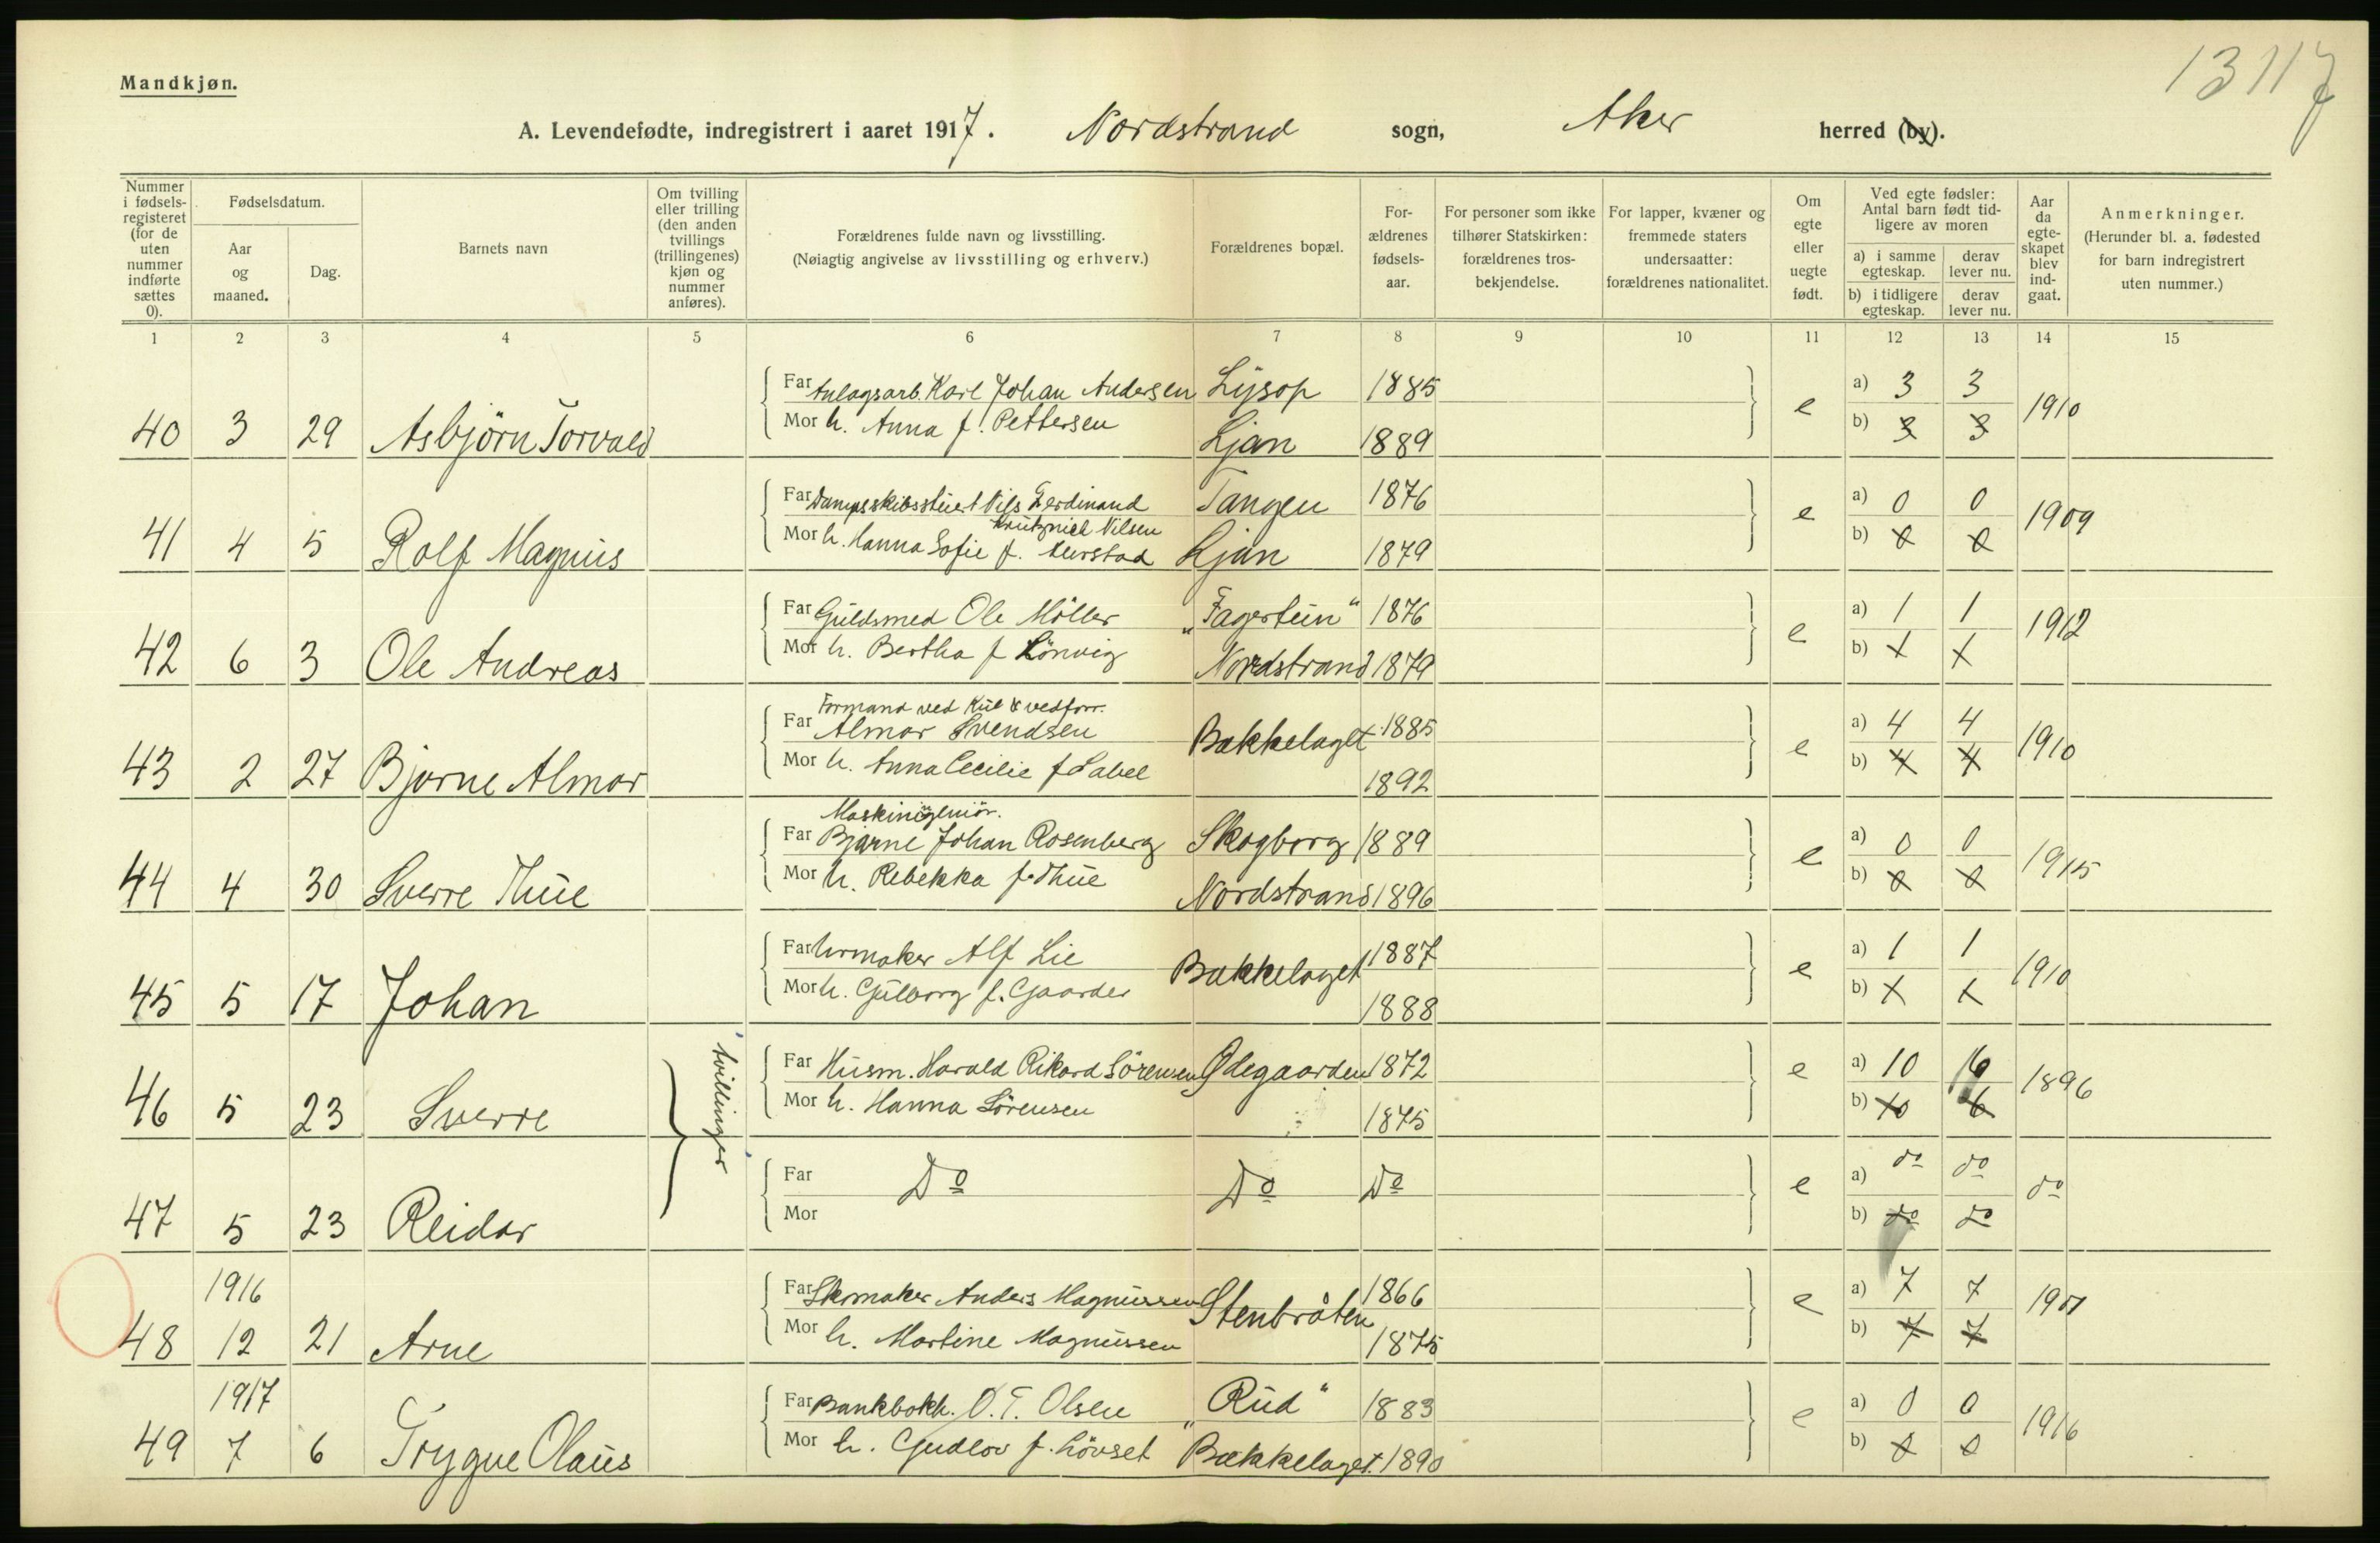 Mandkjøn.
13117
A. Levendefødte, indregistrert i aaret 1917. Nordstrand sogn, Aker herred (by).
Nummer i fødsels-registeret (for de uten nummer indførte sættes 0).
Fødselsdatum.
Aar og maaned.
Dag.
Barnets navn
Om tvilling eller trilling (den anden tvillings (trillingenes) kjøn og nummer anføres).
Forældrenes fulde navn og livsstilling.
(Nøiagtig angivelse av livsstilling og erhverv.)
Forældrenes bopæl.
For-ældrenes fødsels-aar.
For personer som ikke tilhører Statskirken: forældrenes tros-bekjendelse.
For lapper, kvæner og fremmede staters undersaatter: forældrenes nationalitet.
Om egte eller uegte født.
Ved egte fødsler: Antal barn født tid-ligere av moren
a) i samme egteskap. derav lever nu.
b) i tidligere egteskap. derav lever nu.
Aar da egte-skapet blev ind-gaat.
Anmerkninger.
(Herunder bl. a. fødested for barn indregistrert uten nummer.)
1 2 3 4 5 6 7 8 9 10 11 12 13 14 15
Far Anlagsarb. Karl Johan Andersen Lysop 1885 a) 3 3
40 3 29 Asbjörn Torvald Mor h. Anna f. Pettersen Ljan 1889 e b) 3 3 1910
Far Dampskibsstuert Nils Ferdinand Tangen 1876 a) 0 0
Nilsen
41 4 5 Rolf Magnus Mor h. Hanna Sofie f. Aurstad Ljan 1879 e b) 0 0 1909
Far Guldsmed Ole Möller "Fagertun" 1876 a) 1 1
42 6 3 Ole Andreas Mor h. Bertha f Lönvig Nordstrand 1879 e b) 1 1 1912
Formand ved Kul & vedforr.
Far Almar Svendsen Bækkelaget 1885 a) 4 4
43 2 27 Bjarne Almar Mor h. Anna Cecilie f Sabel 1892 e b) 4 4 1910
Maskiningeniör.
Far Bjarne Johan Rosenberg Skogborg 1889 a) 0 0
44 4 30 Sverre Thue Mor h. Rebekka f. Thue Nordstrand 1896 e b) 0 0 1915
Far Urmaker Alf Lie Bækkelaget 1887 a) 1 1
45 5 17 Johan Mor h. Gulborg f. Gaarder 1888 e b) 1 1 1910
tvillinger
Far Husm. Harald Rikard Sörensen Ødegaarden 1872 a) 10 6
46 5 23 Sverre Mor h. Hanna Sörensen 1875 e b) 10 6 1896
Far Do Do Do a) do do
47 5 23 Reidar Mor e b) do do do
1916
Far Skomaker Anders Magnussen Stenbråten 1866 a) 7 7
48 12 21 Arne Mor h. Martine Magnussen 1875 e b) 7 7
1917
Far Bankbokh. O. T. Olsen "Rud" 1883 a) 0 0
49 7 6 Trygve Olaus Mor h. Gudlov f. Lövset Bækkelaget. 1890 e b) 0 0 1916